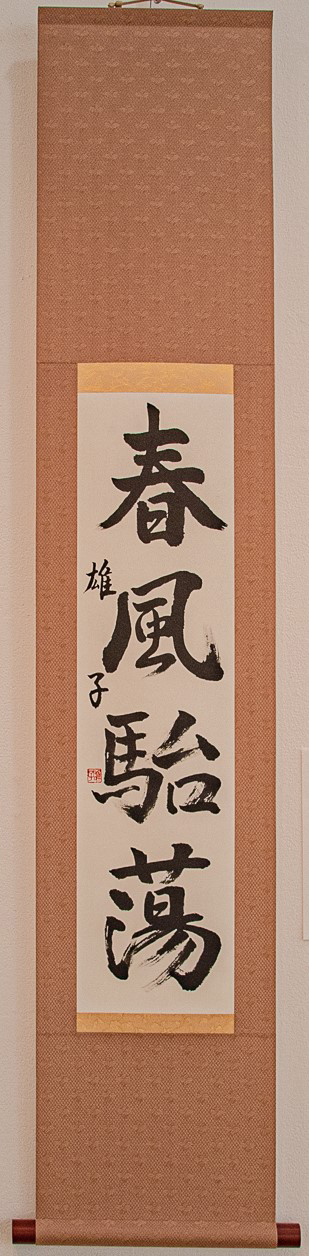 春風駘蕩
雄子